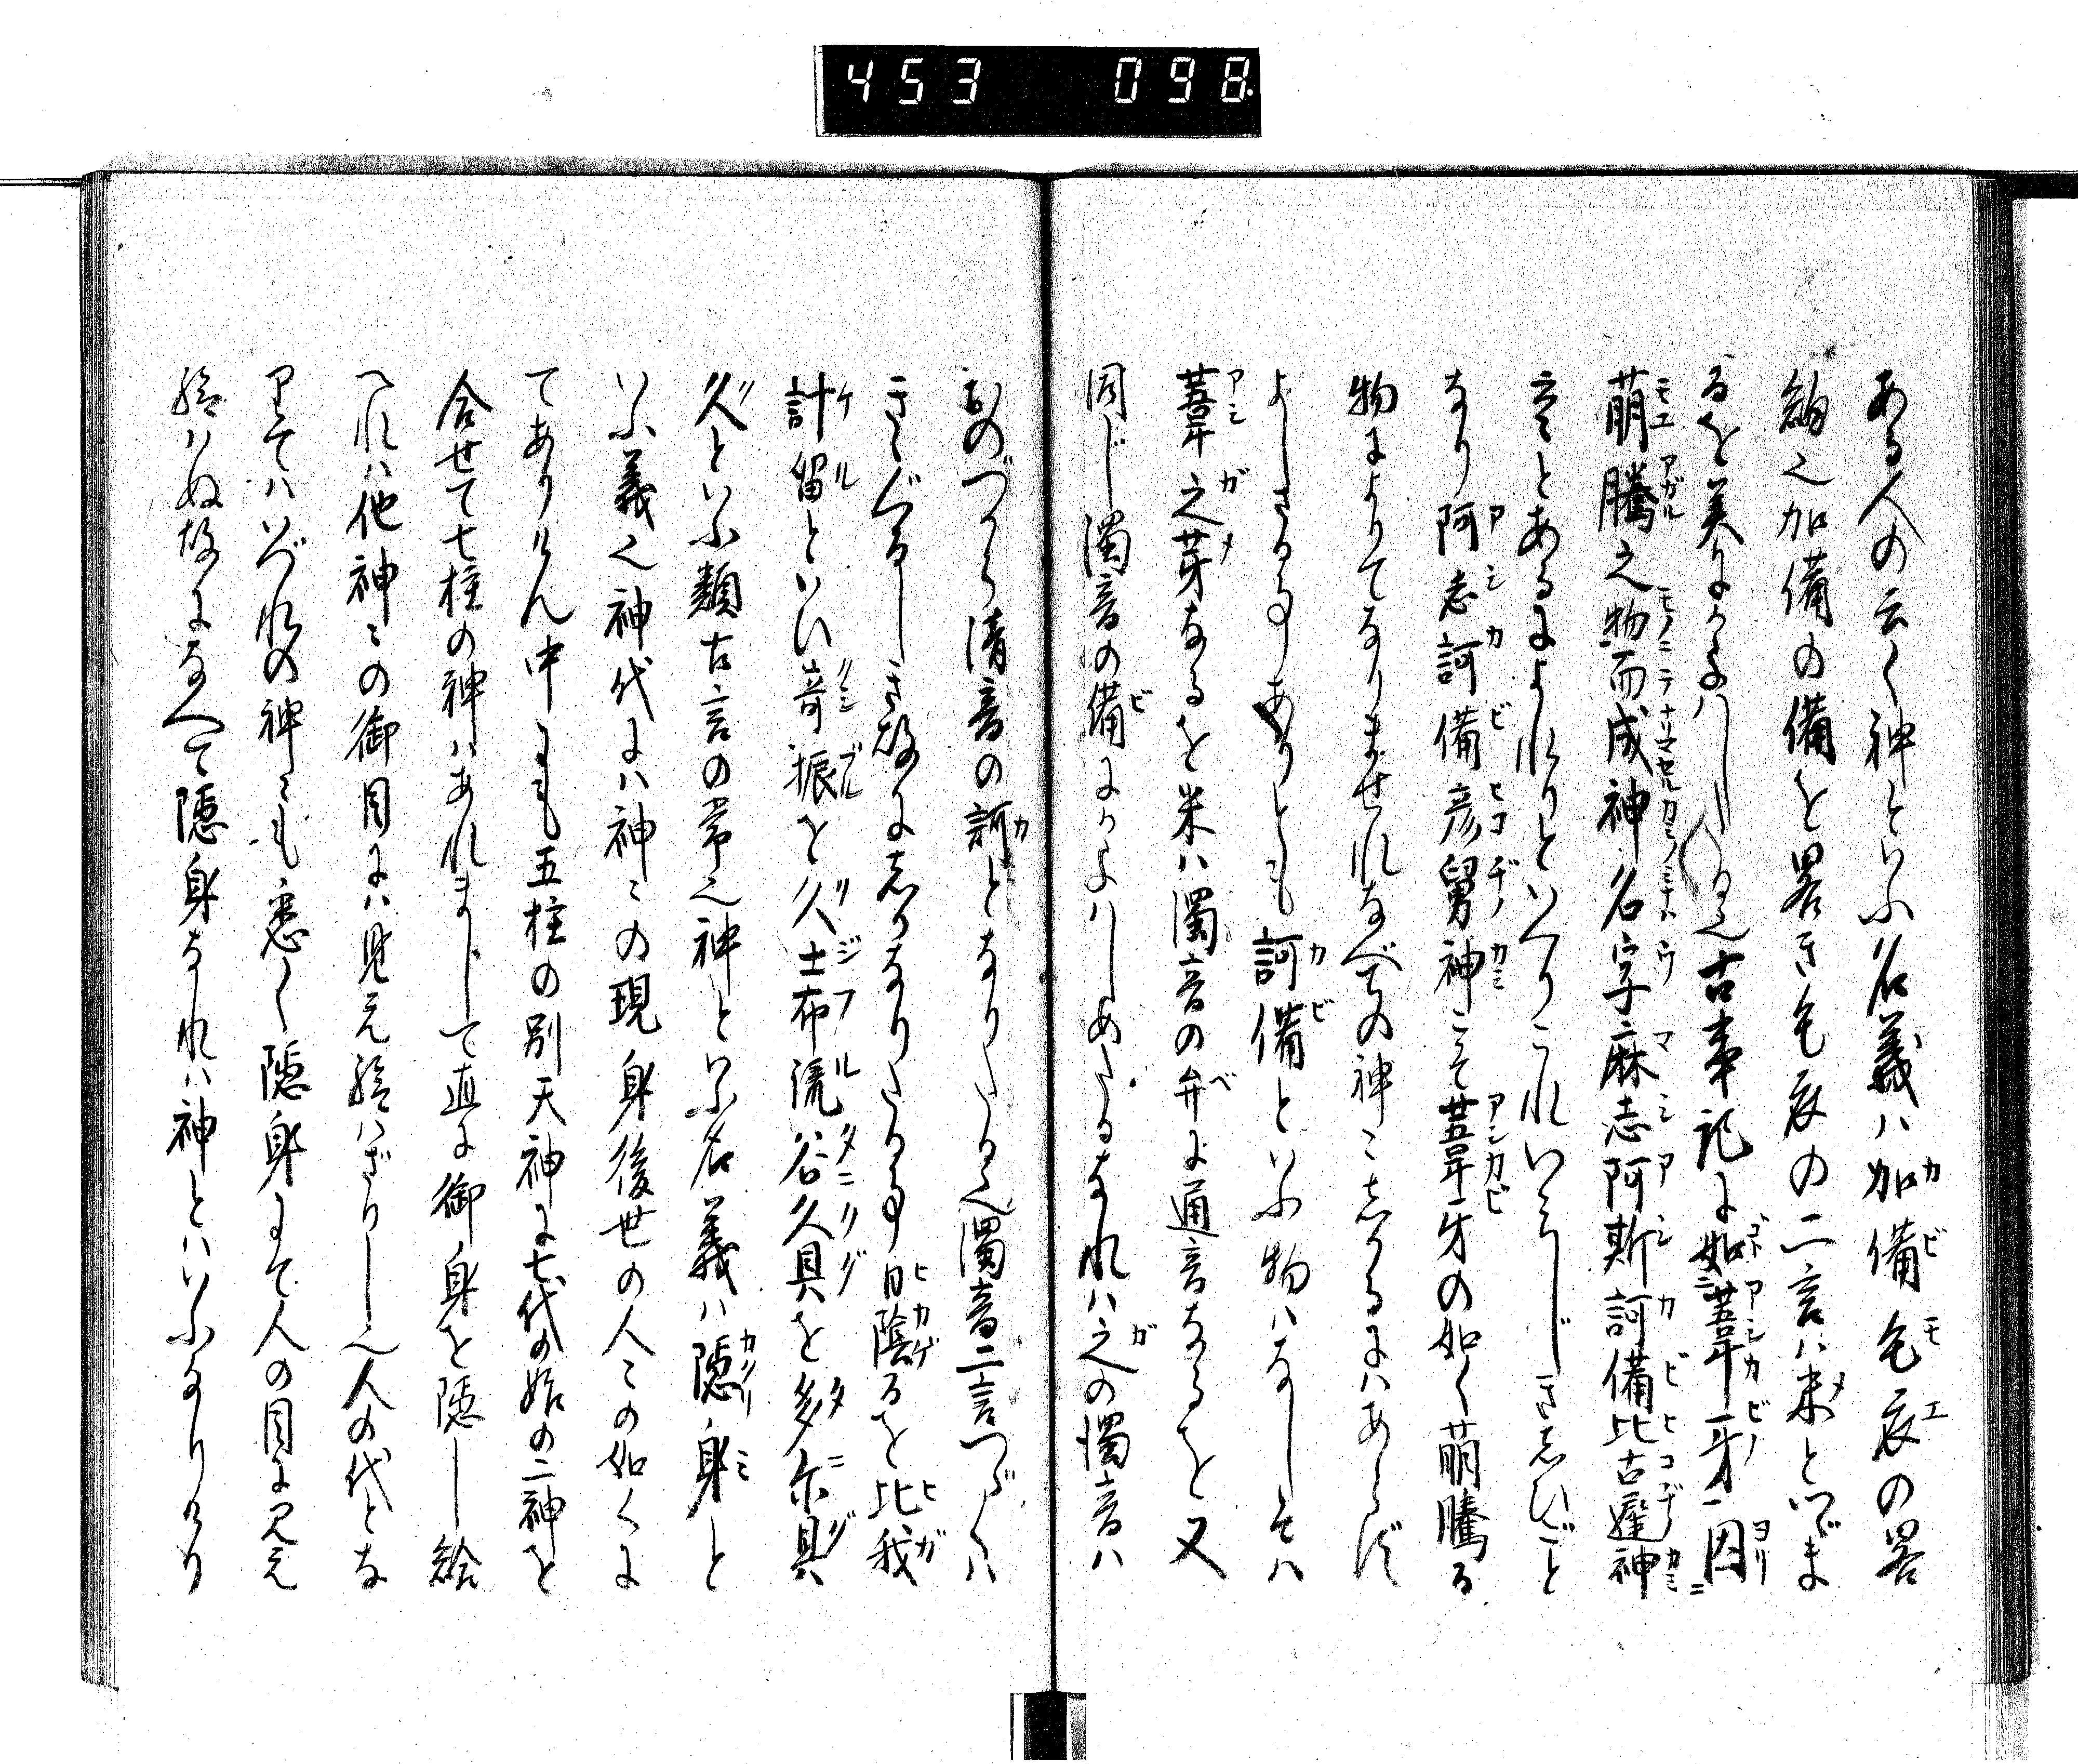 453 098
ある人の云く神といふ名義ハ加備毛衣の畧
継之加備の備を畧き毛衣の二言ハ米とつゞま
るを美にかよハしたる也古事記に如葦牙因
萌騰之物而成神名宇麻志阿斯訶備比古遅神
云々とあるによれりといへりこれいみじきしひごと
なり阿志訶備彦舅神こそ葦牙の如く萌騰る
物によりてなりませれなべての神こゝしかるにハあらず
よしさる事ありとも訶備といふ物ハなしそハ
葦之芽なるを米ハ濁音の弁に通音なるを又
同じ濁音の備にかよハしめたるなれハ之の濁音ハ
おのづから清音の訶となりたる也濁音二言つゞくハ
きゝぐるしき故にしかなりたる事日陰るを比我
計留といひ竒振を久士布流谷久具を多尓具
久といふ類古言の常也神といふ名義ハ隠身と
いふ義也神代にハ神ミの現身後世の人この如くに
てありけん中にも五柱の別天神に七代の始の二神を
合せて七柱の神ハあれまして直に御身を隠し給
へれハ他神ミの御目にハ見え給ハざりし也人の代とな
りてハいづれの神ミも悉く隠身にて人の目に見え
給ハぬ故になへて隠身なれハ神とハいふなりけり